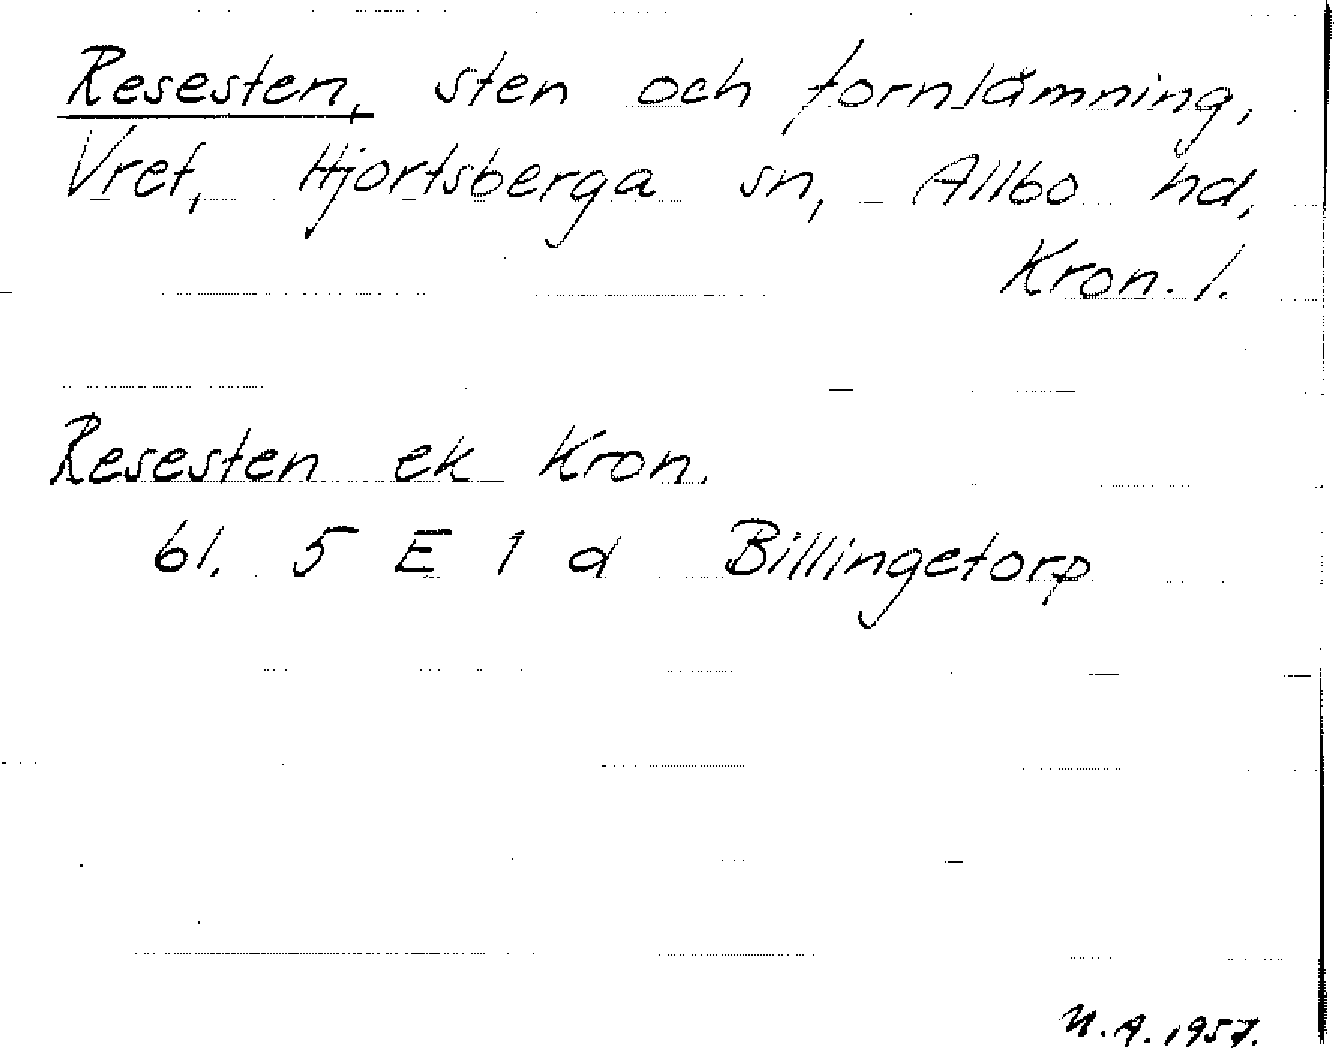 Resesten, sten och fornlämning,
Vret, Hjortsberga sn, Allbo hd,
Kron. l.
Resesten ek Kron.
bl. 5 E 1 d Billingetorp
N.A. 1957.